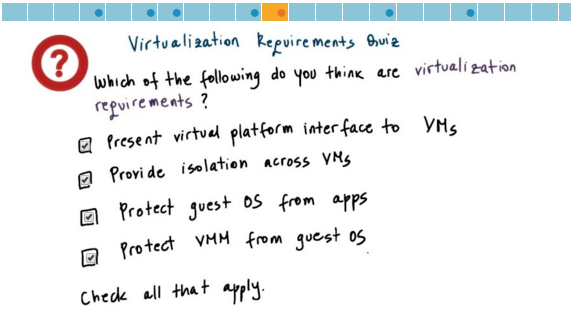 ?
Virtualization Requirements Quiz
Which of the following do you think are virtualization
requirements ?
Present virtual platform interface to VMs
Provide isolation across VMs
Protect guest OS from apps
Protect VMM from guest OS
Check all that apply.